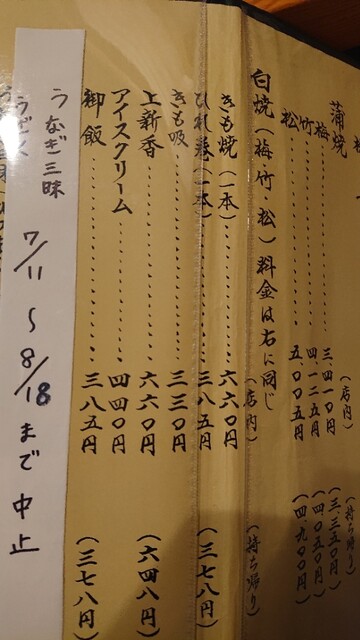 蒲焼 (店内) (持ち帰り)
梅……三四一〇円 (三、三五〇円)
竹……四一二五円 (四〇五〇円)
松……五〇〇五円 (四、九〇〇円)
白焼(梅・竹・松)料金は右に同じ
(店内) (持ち帰り)
きも焼(一本)……六六〇円
ひれ巻(一本)……三八五円 (三七八円)
きも吸……三三〇円
上新香……六六〇円 (六四八円)
アイスクリーム……四四〇円
御飯……三八五円 (三七八円)
うなぎ三昧 7/11〜8/18まで中止